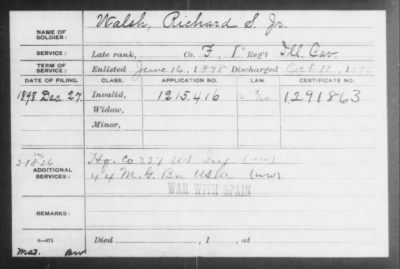 NAME OF SOLDIER: Walsh, Richard S. Jr.
SERVICE: Late rank, Co. F, 1" Reg't Ill. Cav.
TERM OF SERVICE: Enlisted June 16, 1898 Discharged Oct 11, 1898
DATE OF FILING. CLASS. APPLICATION NO. LAW. CERTIFICATE NO.
1898 Dec. 27. Invalid, 1215,416 1291863
Widow,
Minor,
2-18-26
ADDITIONAL SERVICES: Hq. Co 337 US Inf (WW)
44 M. G. Bn USA (WW)
WAR WITH SPAIN
REMARKS:
Died , 1 , at